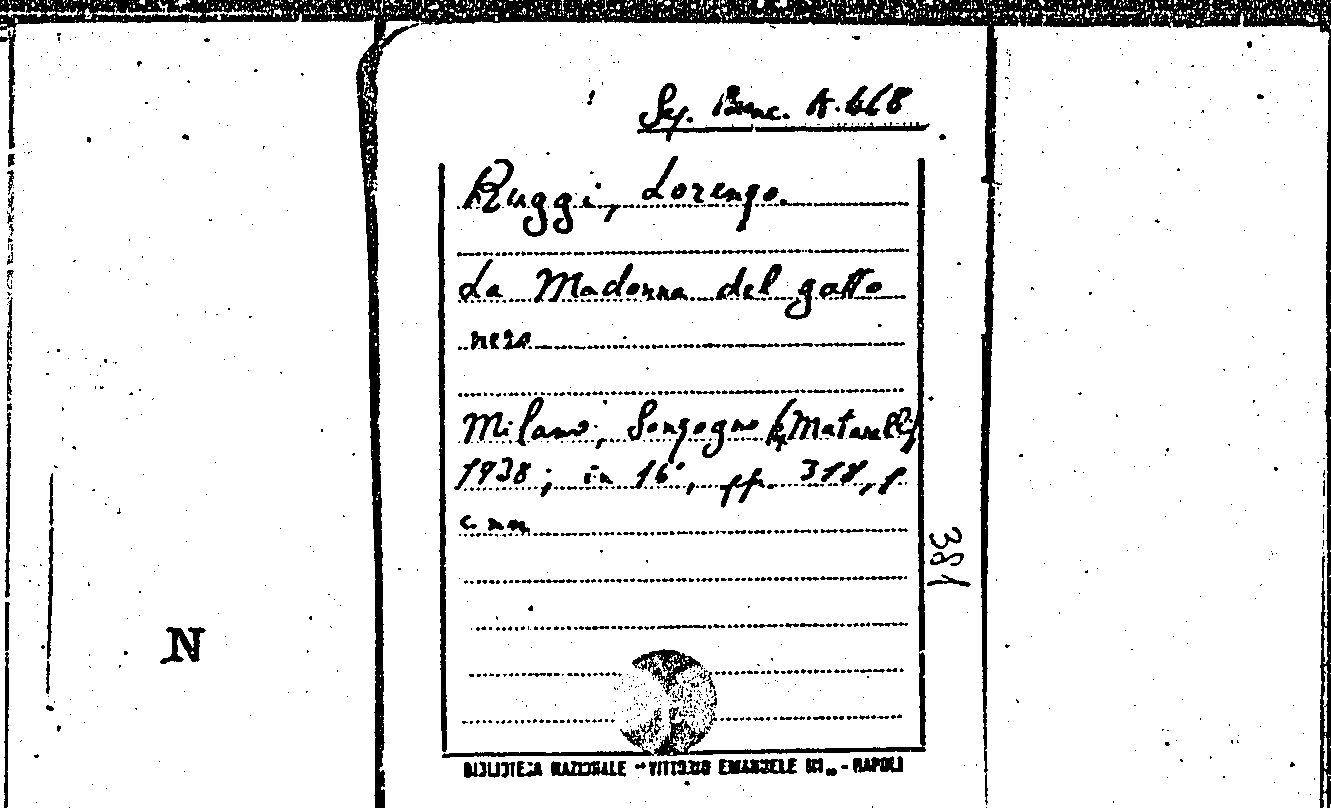 Sez. Banc. A. 468
Ruggi, Lorenzo.
La Madonna del gatto
nero
Milano, Sonzogno (Matarelli)
1938; in 16°, pp. 318,
c. nn.
381
N
BIBLIOTECA NAZIONALE "VITTORIO EMANUELE III" - NAPOLI